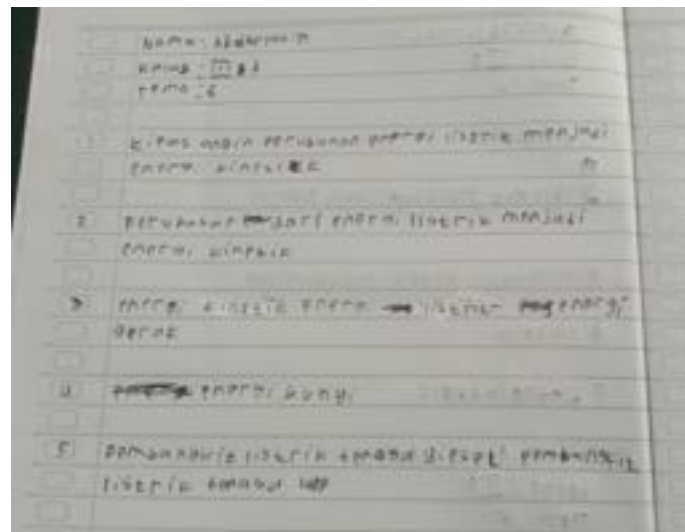 Nama:
Kelas: III
tema: 6
1 kipas angin perubahan energi listrik menjadi
energi kinetik
2 perubahan dari energi listrik menjadi
energi kinetik
3 energi kinetik energi listrik energi
gerak
4 energi bunyi
5 pembangkit listrik tenaga diesel pembangkit
listrik tenaga